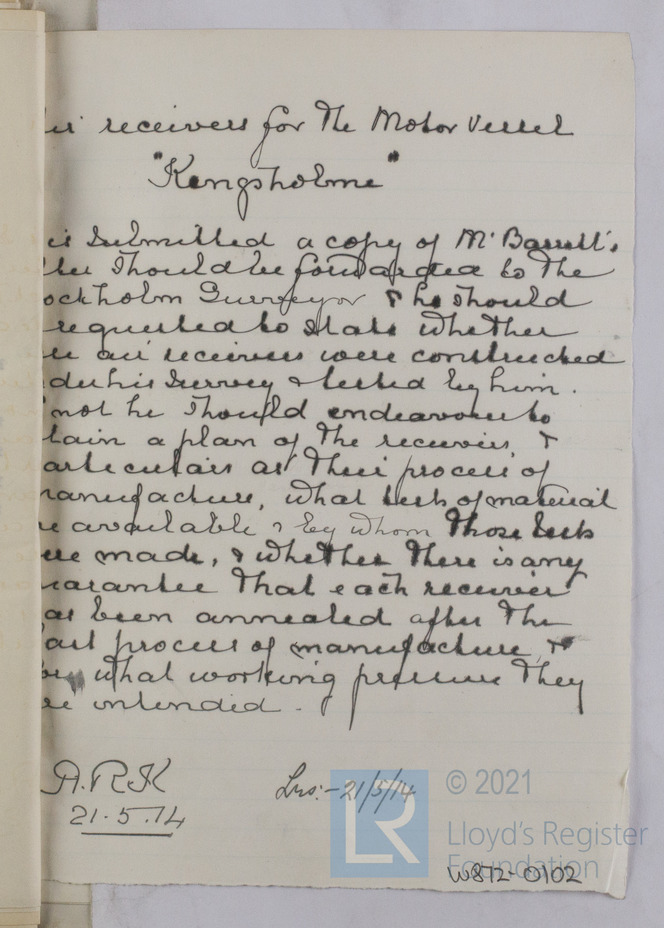 air receivers for the Motor Vessel
"Kingsholme"
is submitted a copy of Mr Barrett's
tter should be forwarded to the
ockholm Surveyor & he should
requested to state whether
se air receivers were constructed
der his Survey & tested by him.
not he should endeavour to
tain a plan of the receivers, &
articulars as their process of
manufacture, what tests of material
re available & by whom those tests
ere made, & whether there is any
uarantee that each receiver
as been annealed after the
ast process of manufacture, &
for what working pressure they
re intended.
A.R.K
21.5.14
Lns:- 21/5/14
LR
© 2021
Lloyd's Register
Foundation
W872-0102